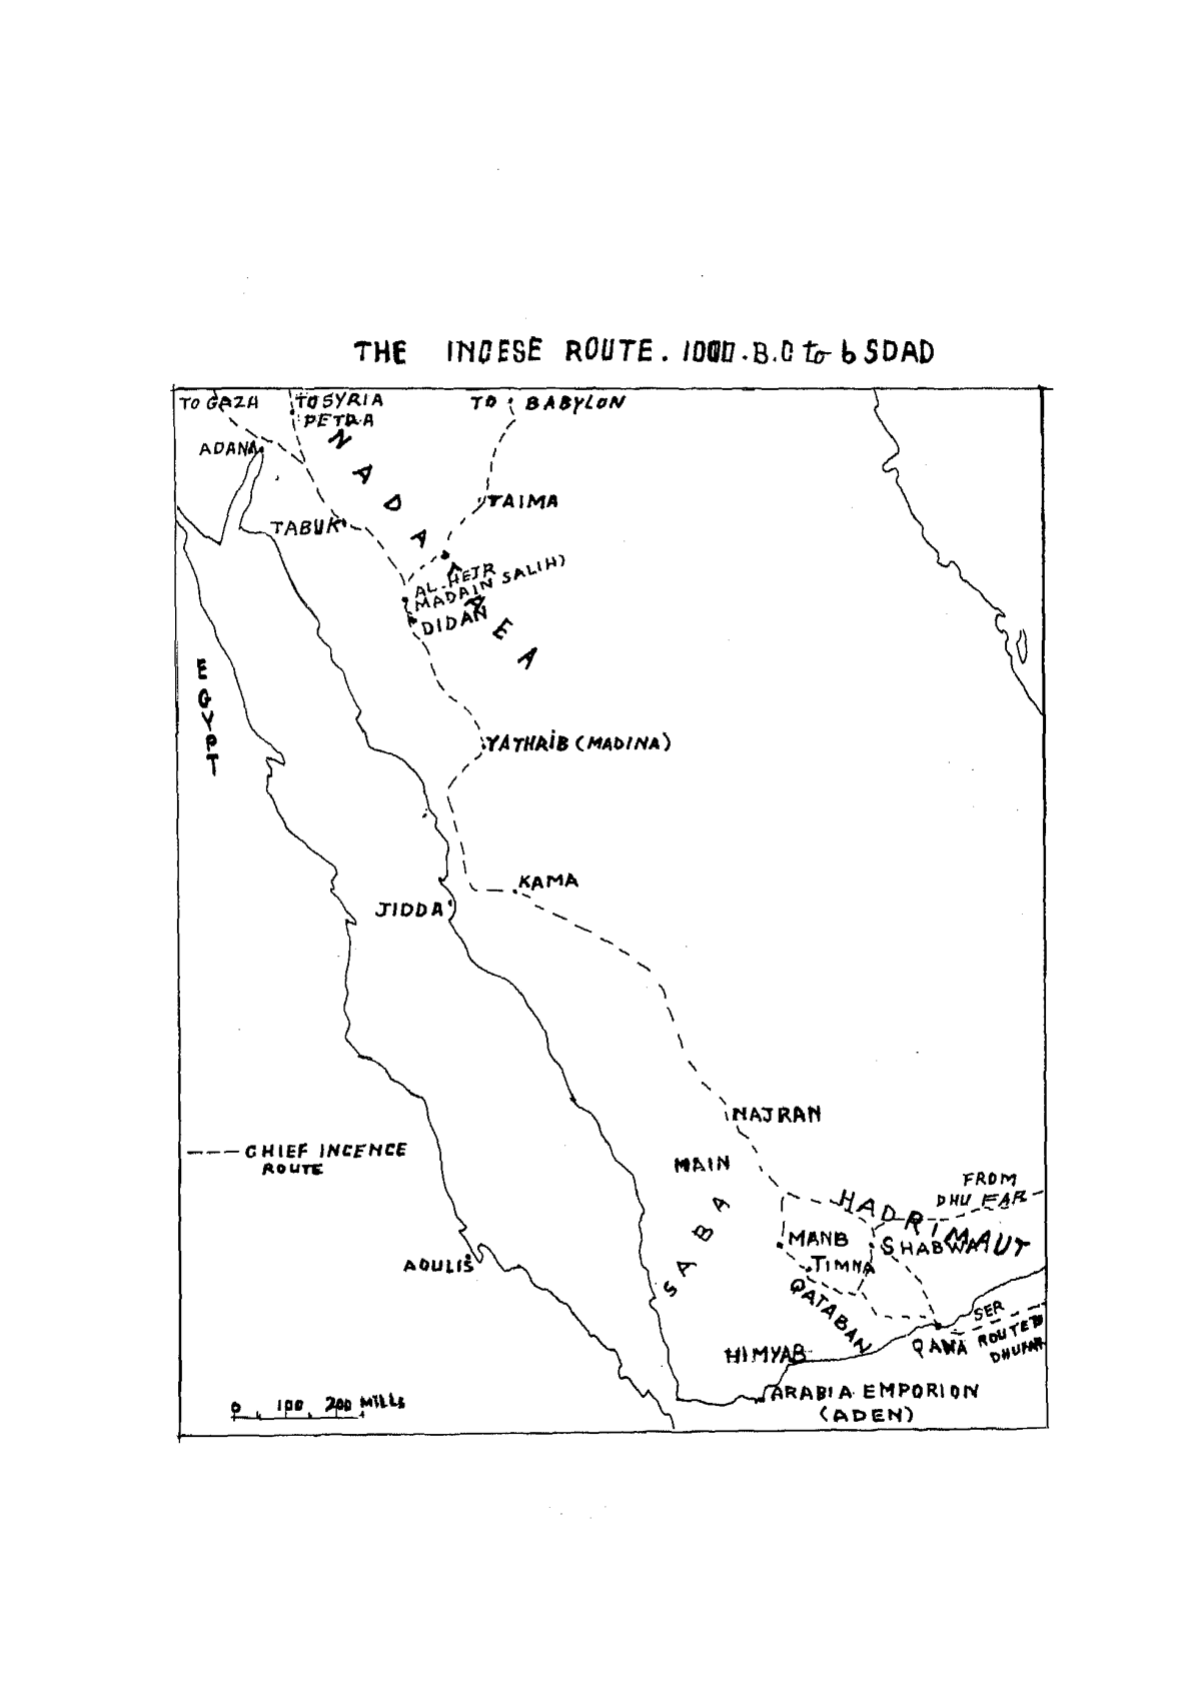 THE INCESE ROUTE. 1000.B.C to 6 SDAD
TO GAZA
TO SYRIA
PETRA
TO BABYLON
ADANA
NADA
TAIMA
TABUK
AL-HEJR
MADAIN SALIH)
DIDAN
EA
EGYPT
YATHRIB (MADINA)
KAMA
JIDDA
NAJRAN
CHIEF INCENCE
ROUTE
MAIN
SABA
FROM
DHU FAR
HADRIMAUT
MANB
SHABWA
TIMNA
QATABAN
ADULIS
SER
ROUTE TO
DHUFAR
QAWA
HIMYAB
ARABIA EMPORION
(ADEN)
0 100 200 MILLS